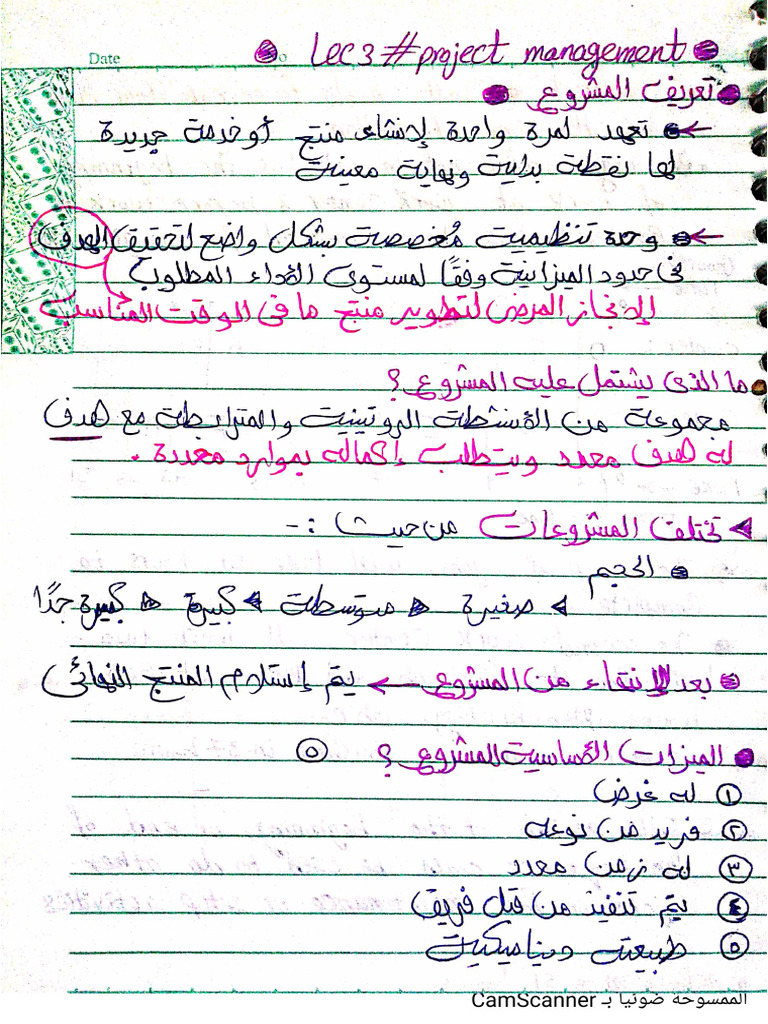 Date No
Lec 3 # project management
تعريف المشروع
← تعهد لمرة واحدة لإنشاء منتج أو خدمة جديدة
لها نقطة بداية ونهاية معينة
← وحدة تنظيمية مُخصصة بشكل واضح لتحقيق الهدف
في حدود الميزانية وفقاً لمستوى الأداء المطلوب
الإنجاز المرض لتطوير منتج ما في الوقت المناسب
ما الذي يشتمل عليه المشروع ؟
مجموعة من الأنشطة الروتينية والمترابطة مع هدف
له هدف محدد ويتطلب إكماله بموارد محددة .
تختلف المشروعات من حيث :-
الحجم
صغيرة متوسطة كبيرة كبيرة جدًا
بعد الانتهاء من المشروع ← يتم إستلام المنتج النهائي
الميزات الأساسية للمشروع ؟ ٥
١ له غرض
٢ فريد من نوعه
٣ له زمن محدد
٤ يتم تنفيذ من قبل فريق
٥ طبيعته ديناميكية
الممسوحة ضوئيا بـ CamScanner